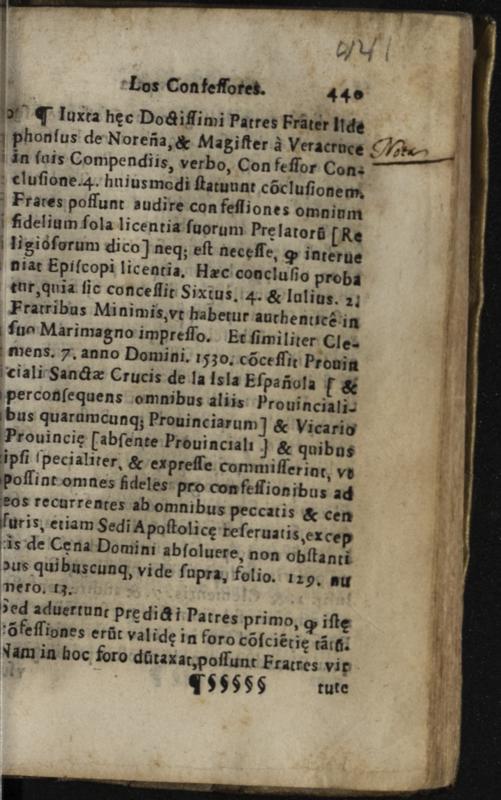 441
Los Confessores. 440
¶ Iuxta hęc Doctissimi Patres Frater Ilde
phonsus de Noreña, & Magister à Veracruce
in suis Compendiis, verbo, Confessor Con-
clusione. 4. huiusmodi statuunt cōclusionem.
Frates possunt audire confessiones omnium
fidelium sola licentia suorum Pręlatorū [Re
ligiosorum dico] neq; est necesse, ꝙ interue
niat Episcopi licentia. Hæc conclusio proba
tur, quia sic concessit Sixtus. 4. & Iulius. 2.
Fratribus Minimis, vt habetur authenticè in
suo Marimagno impresso. Et similiter Cle-
mens. 7. anno Domini. 1530. cōcessit Prouin
ciali Sanctæ Crucis de la Isla Española [ &
perconsequens omnibus aliis Prouinciali-
bus quarumcunq; Prouinciarum] & Vicario
Prouincię [absente Prouinciali ] & quibus
ipsi specialiter, & expresse commisserint, vt
possint omnes fideles pro confessionibus ad
eos recurrentes ab omnibus peccatis & cen
suris, etiam Sedi Apostolicę reseruatis, excep
tis de Cęna Domini absoluere, non obstanti
bus quibuscunq, vide supra, folio. 129. nu
mero. 13.
Sed aduertunt prędicti Patres primo, ꝙ istę
cōfessiones erūt validę in foro cōsciētię tātū.
Nam in hoc foro dūtaxat, possunt Fratres vir
¶§§§§§ tute
Nota